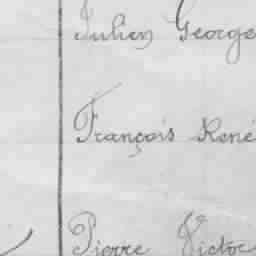 Julien George
François René
Pierre Victor